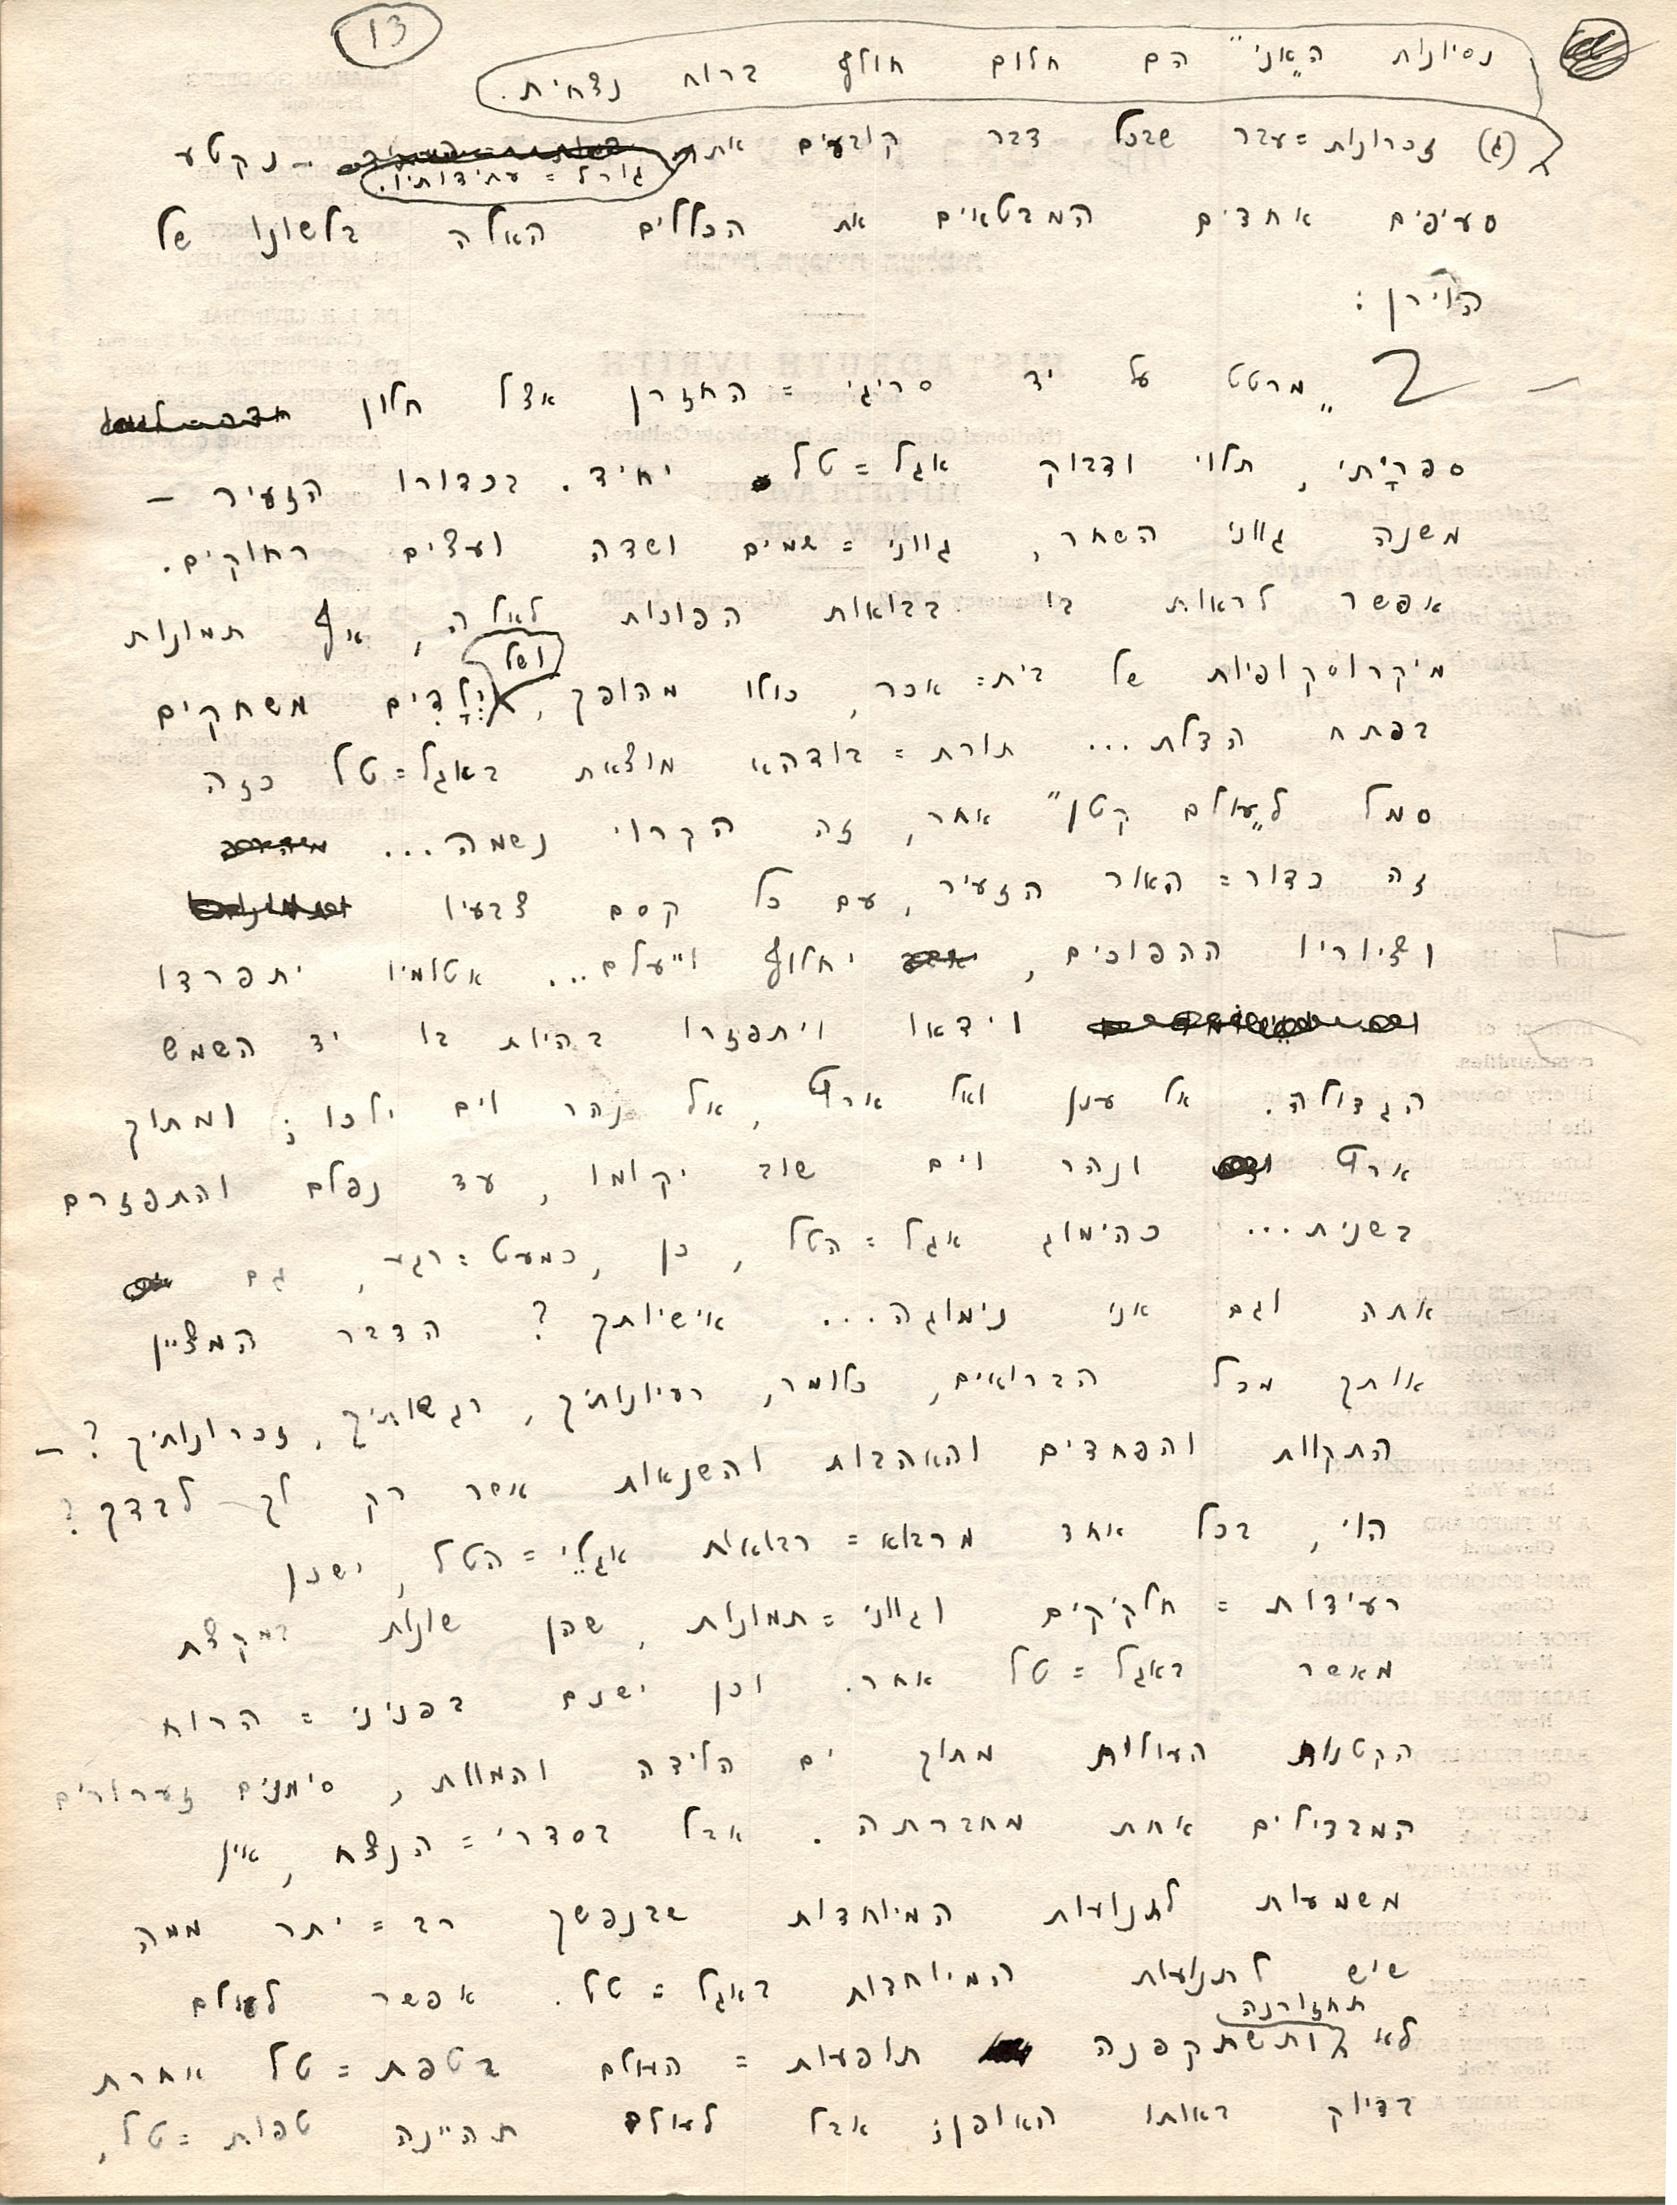 13
נסיונות ה„אני" הם חלום חולף ברוח נצחית.
(ג) זכרונות=עבר שבכל דבר קובעים את גורל=עתידותיו. – נקטע
סעיפים אחדים המבטאים את הכללים האלה בלשונו של
הירן :
– „מרטט על יד סריגי=החזרן אצל חלון
ספריתי, תלוי ודבוק אגל=טל יחיד. בכדורו הזעיר –
משנה גווני השחר, גווני=שמים ושדה ועצים רחוקים.
אפשר לראות בו בבואות הפוכות לאלה, אף תמונות
מיקרוסקופיות של בית=אכר, כולו מהופך, ושל יְלָדִים משחקים
בפתח הדלת... תורת=בודהא מוצאת באגל=טל כזה
סמל ל„עולם קטן" אחר, זה הקרוי נשמה...
זה כדור=האור הזעיר, עם כל קסם צבעיו
וציוריו ההפוכים, יחלוף וייעלם... אטומיו יתפרדו
וידאו ויתפזרו בהיות בו יד השמש
הגדולה. אל ענן ואל ארץ, אל נהר וים ילכו; ומתוך
ארץ ונהר וים שוב יקומו, עד נפלם והתפזרם
בשנית... כהימוג אגל=הטל, כן, כמעט=רגע, גם
אתה וגם אני נימוגה... אישיותך? הדבר המציין
אותך מכל הברואים, כלומר, רעיונותיך, רגשותיך, זכרונותיך? –
התקוות והפחדים והאהבות והשנאות אשר רק לך לבדך?
הוי, בכל אחד מרבוא=רבואות אגלֵי=הטל, ישנן
רעידות=חלקיקים וגווני=תמונות, שהן שונות במקצת
מאשר באגל=טל אחר. וכן ישנם בפניני=הרוח
הקטנות העולות מתוך ים הלידה והמוות, סימנים זערורים
המבדילים אחת מחברתה. אבל בסדרי=הנצח, אין
משמעות לתנועות המיוחדות שבנפשך רב=יתר ממה
שיש לתנועות המיוחדות באגל=טל. אפשר לעולם
לא תחזורנה ותשתקפנה תופעות=העולם בטפת=טל אחרת
בדיוק באותו האופן; אבל לעולם תהיינה טפות=טל,